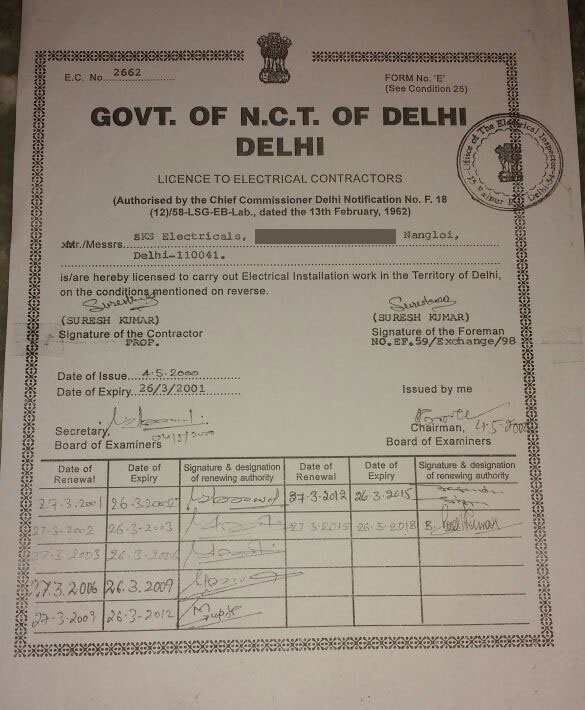 E.C. No. 2662
FORM No. 'E'
(See Condition 25)
GOVT. OF N.C.T. OF DELHI
DELHI
Office of The Electrical Inspector
LICENCE TO ELECTRICAL CONTRACTORS
(Authorised by the Chief Commissioner Delhi Notification No. F. 18
(12)/58-LSG-EB-Lab., dated the 13th February, 1962)
Mr./Messrs. SKS Electricals, Nangloi,
Delhi-110041.
is/are hereby licensed to carry out Electrical Installation work in the Territory of Delhi,
on the conditions mentioned on reverse.
(SURESH KUMAR)
Signature of the Contractor
PROP.
(SURESH KUMAR)
Signature of the Foreman
NO.EF.59/Exchange/98
Date of Issue 4.5.2000
Date of Expiry 26/3/2001
Issued by me
Secretary,
Board of Examiners
Chairman, 4-5-2000
Board of Examiners
Date of Renewal Date of Expiry Signature & designation of renewing authority Date of Renewal Date of Expiry Signature & designation of renewing authority
27-3-2001 27-3-2012 26-3-2015
27-3-2002 26-3-2003 27-3-2015 26-3-2018
27-3-2003 26-3-2006
27.3.2006 26.3.2009
27-3-2009 26-3-2012